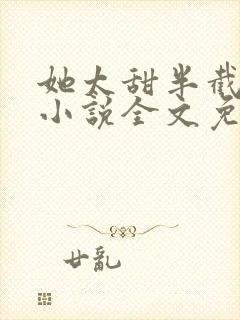 她太甜半截
小說全文免
廿亂